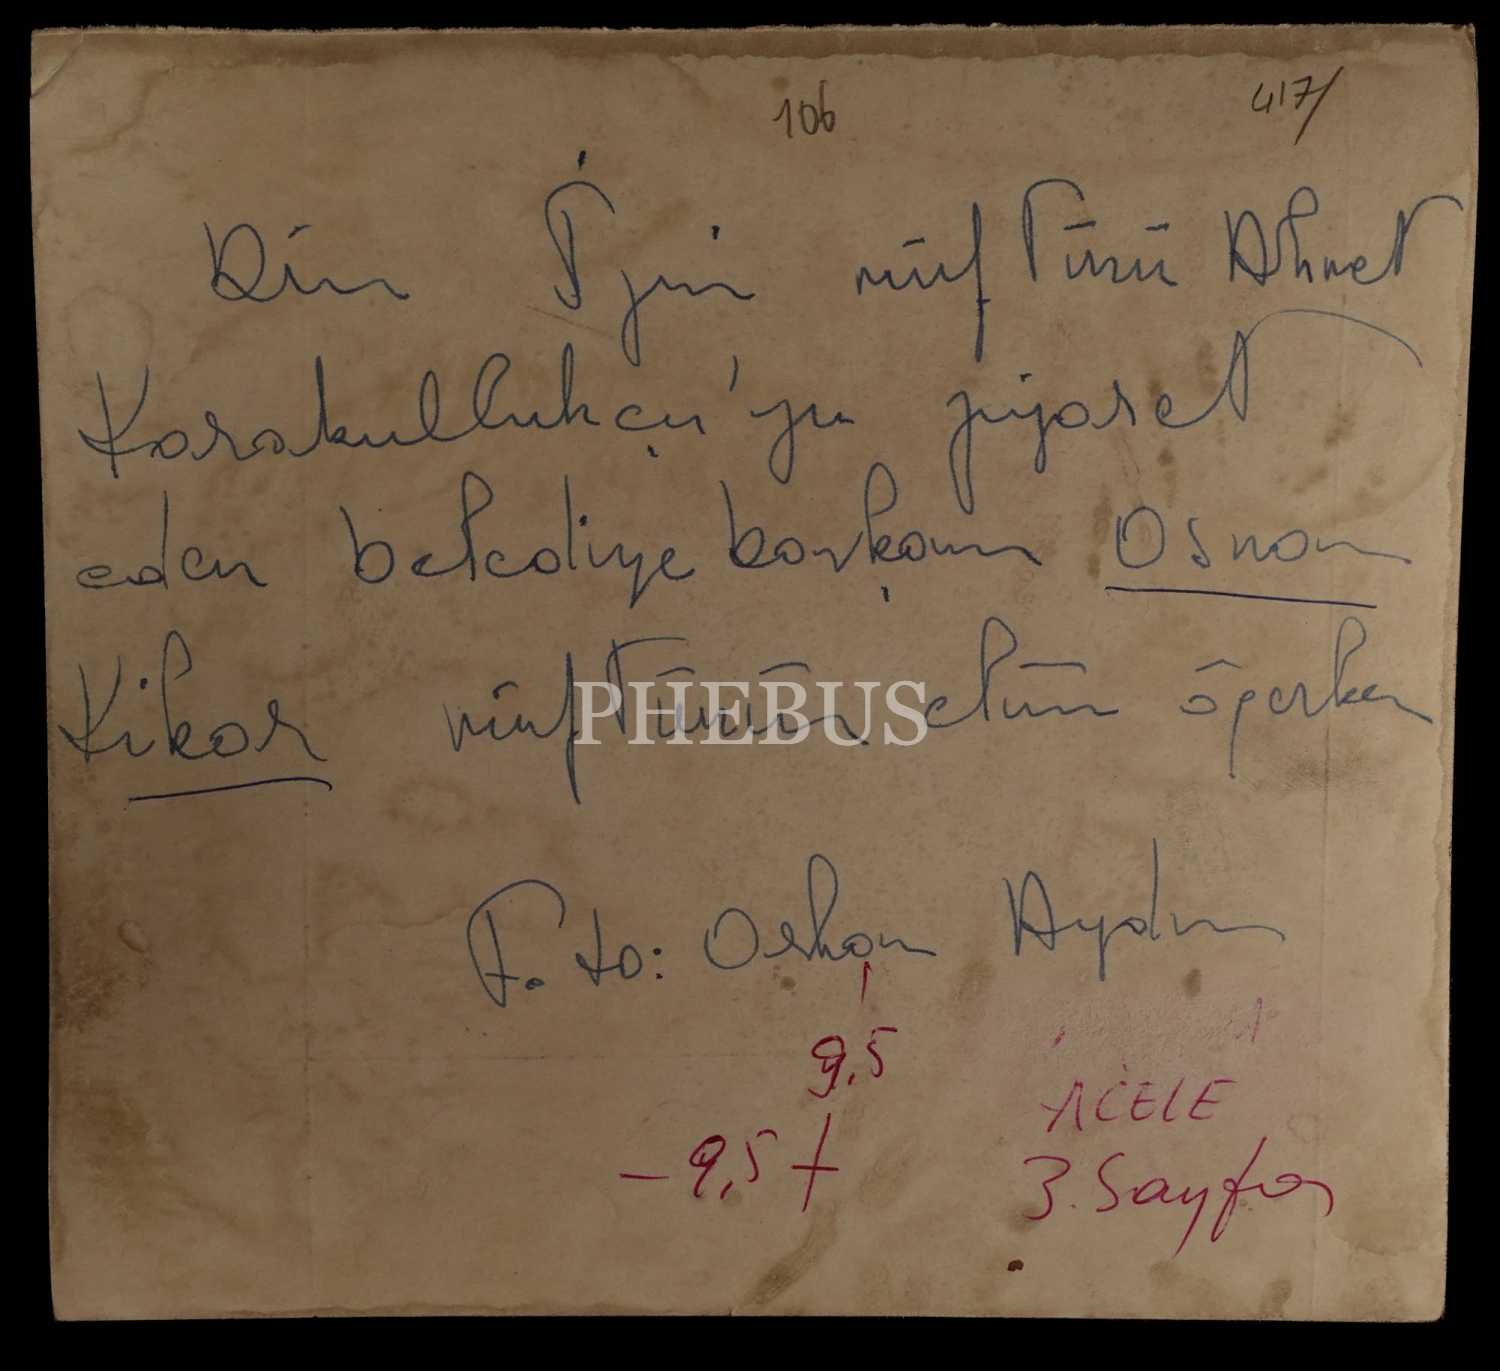 106
417/
Din İşin müftüsü Ahmet
Karakullukçu'yu ziyaret
eden belediye başkanı Osman
Kibar müftünün elini öperken
PHEBUS
Foto: Orhan Aydın
9,5
-9,5 +
ACELE
3. Sayfa